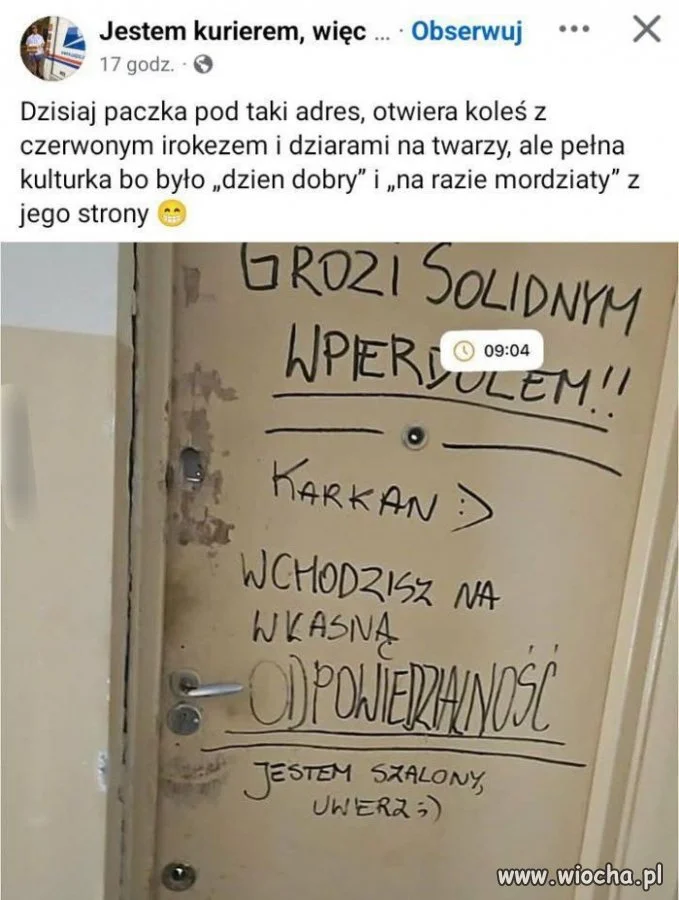 Jestem kurierem, więc ... · Obserwuj
17 godz. ·
Dzisiaj paczka pod taki adres, otwiera koleś z
czerwonym irokezem i dziarami na twarzy, ale pełna
kulturka bo było „dzien dobry” i „na razie mordziaty” z
jego strony 😁
GROZI SOLIDNYM
WPIERDOLEM!!
09:04
KARKAN :)
WCHODZISZ NA
WŁASNĄ
ODPOWIEDZIALNOŚĆ
JESTEM SZALONY,
UWERZ ;)
www.wiocha.pl